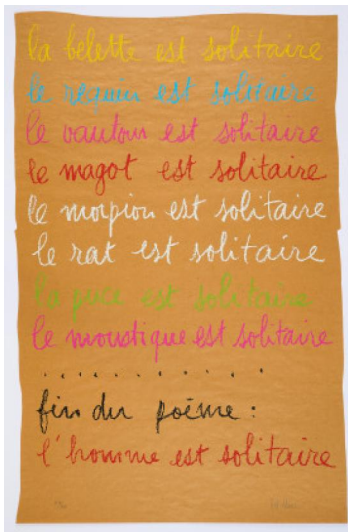 la belette est solitaire
le requin est solitaire
le vautour est solitaire
le magot est solitaire
le morpion est solitaire
le rat est solitaire
la puce est solitaire
le moustique est solitaire
. . . . . . . . . . .
fin du poème :
l'homme est solitaire